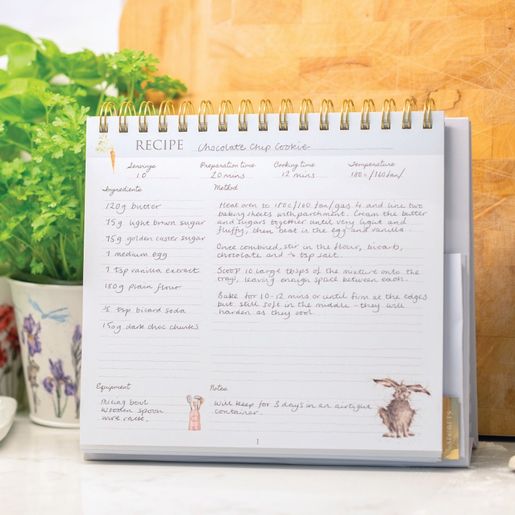 RECIPE Chocolate Chip Cookie
Servings Preparation time Cooking time Temperature
10 20 mins 12 mins 180c/160 fan/
Ingredients
120g butter
75g light brown sugar
75g golden caster sugar
1 medium egg
1 tsp vanilla extract
180g plain flour
½ tsp bicarb soda
150g dark choc chunks
Method
Heat oven to 180c/160 fan/gas 4 and line two
baking sheets with parchment. Cream the butter
and sugars together until very light and
fluffy, then beat in the egg and vanilla.
Once combined, stir in the flour, bicarb,
chocolate and ¼ tsp salt.
Scoop 10 large tbsps of the mixture onto the
trays, leaving enough space between each.
Bake for 10-12 mins or until firm at the edges
but still soft in the middle - they will
harden as they cool.
Equipment
Mixing bowl
Wooden spoon
wire rack.
Notes
Will keep for 3 days in an airtight
container.
1